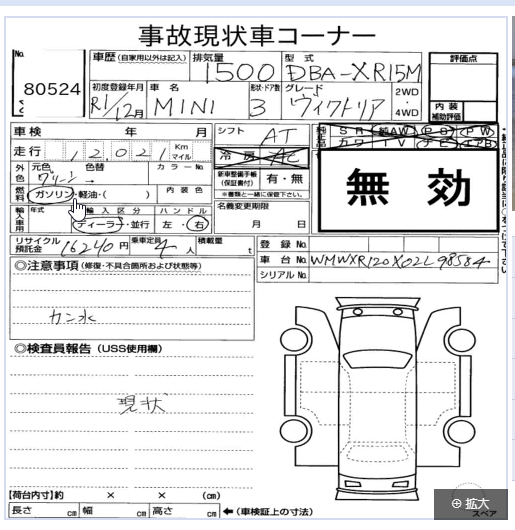 事故現状車コーナー
No. 80524
車歴 (自家用以外は記入) 排気量 1500 型式 DBA-XR15M 評価点
初度登録年月 R1/12月 車名 MINI 形状・ドア数 3 グレード ヴィクトリア 2WD・4WD 内装補助評価
車検 年 月 シフト AT 純正品 SR 純AW PS PW
走行 12,021 Km マイル 冷房 AC カワ TV ナビ エアB
外色 元色 グリーン 色替 カラーNo. 新車整備手帳(保証書付) 有・無 無効
燃料 ガソリン・軽油・( ) 内装色 ※内容と一緒に保管下さい。
輸入車用 年式 輸入区分 ディーラー・並行 ハンドル 左・右 名義変更期限 月 日
リサイクル預託金 16240円 乗車定員 4人 積載量 t 登録No.
車台No. WMWXR120X02L98584
シリアルNo.
◎注意事項 (修復・不具合箇所および状態等)
カン水
◎検査員報告 (USS使用欄)
現状
【荷台内寸】約 × × (cm)
長さ cm 幅 cm 高さ cm ←(車検証上の寸法)
スペア
拡大